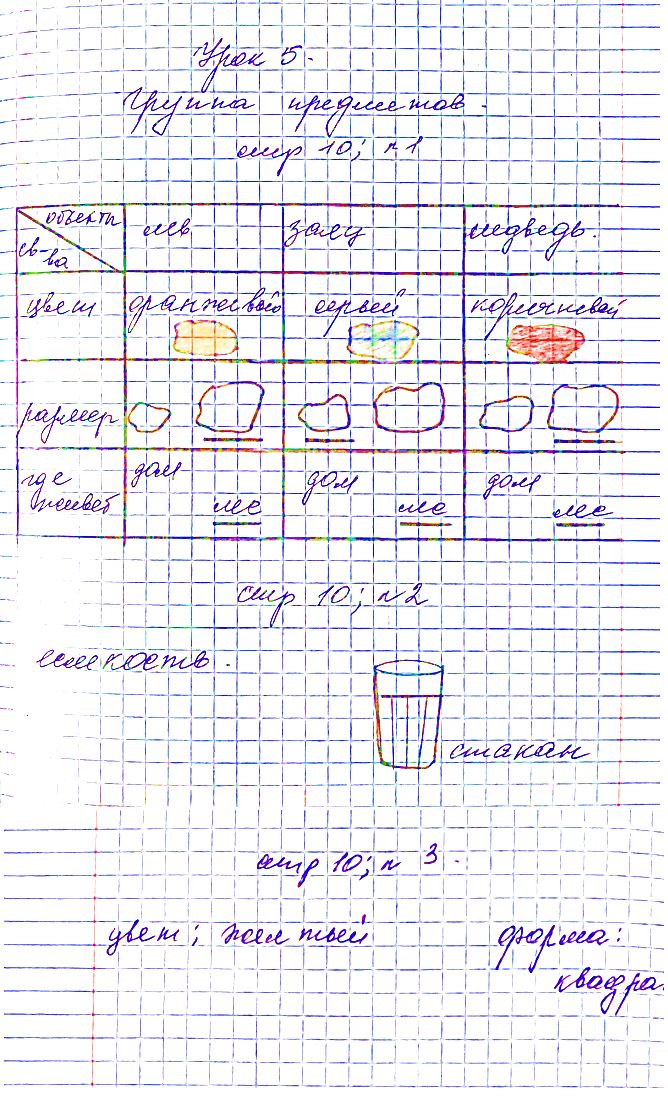 Урок 5.
Группа предметов.
стр 10; n1
объекты
св-
ва
лев
заяц
медведь.
цвет
оранжевый
серый
коричневый
размер
где
живет
дом
лес
дом
лес
дом
лес
стр 10; n2
емкость.
стакан
стр 10; n 3.
цвет; желтый
форма:
квадра